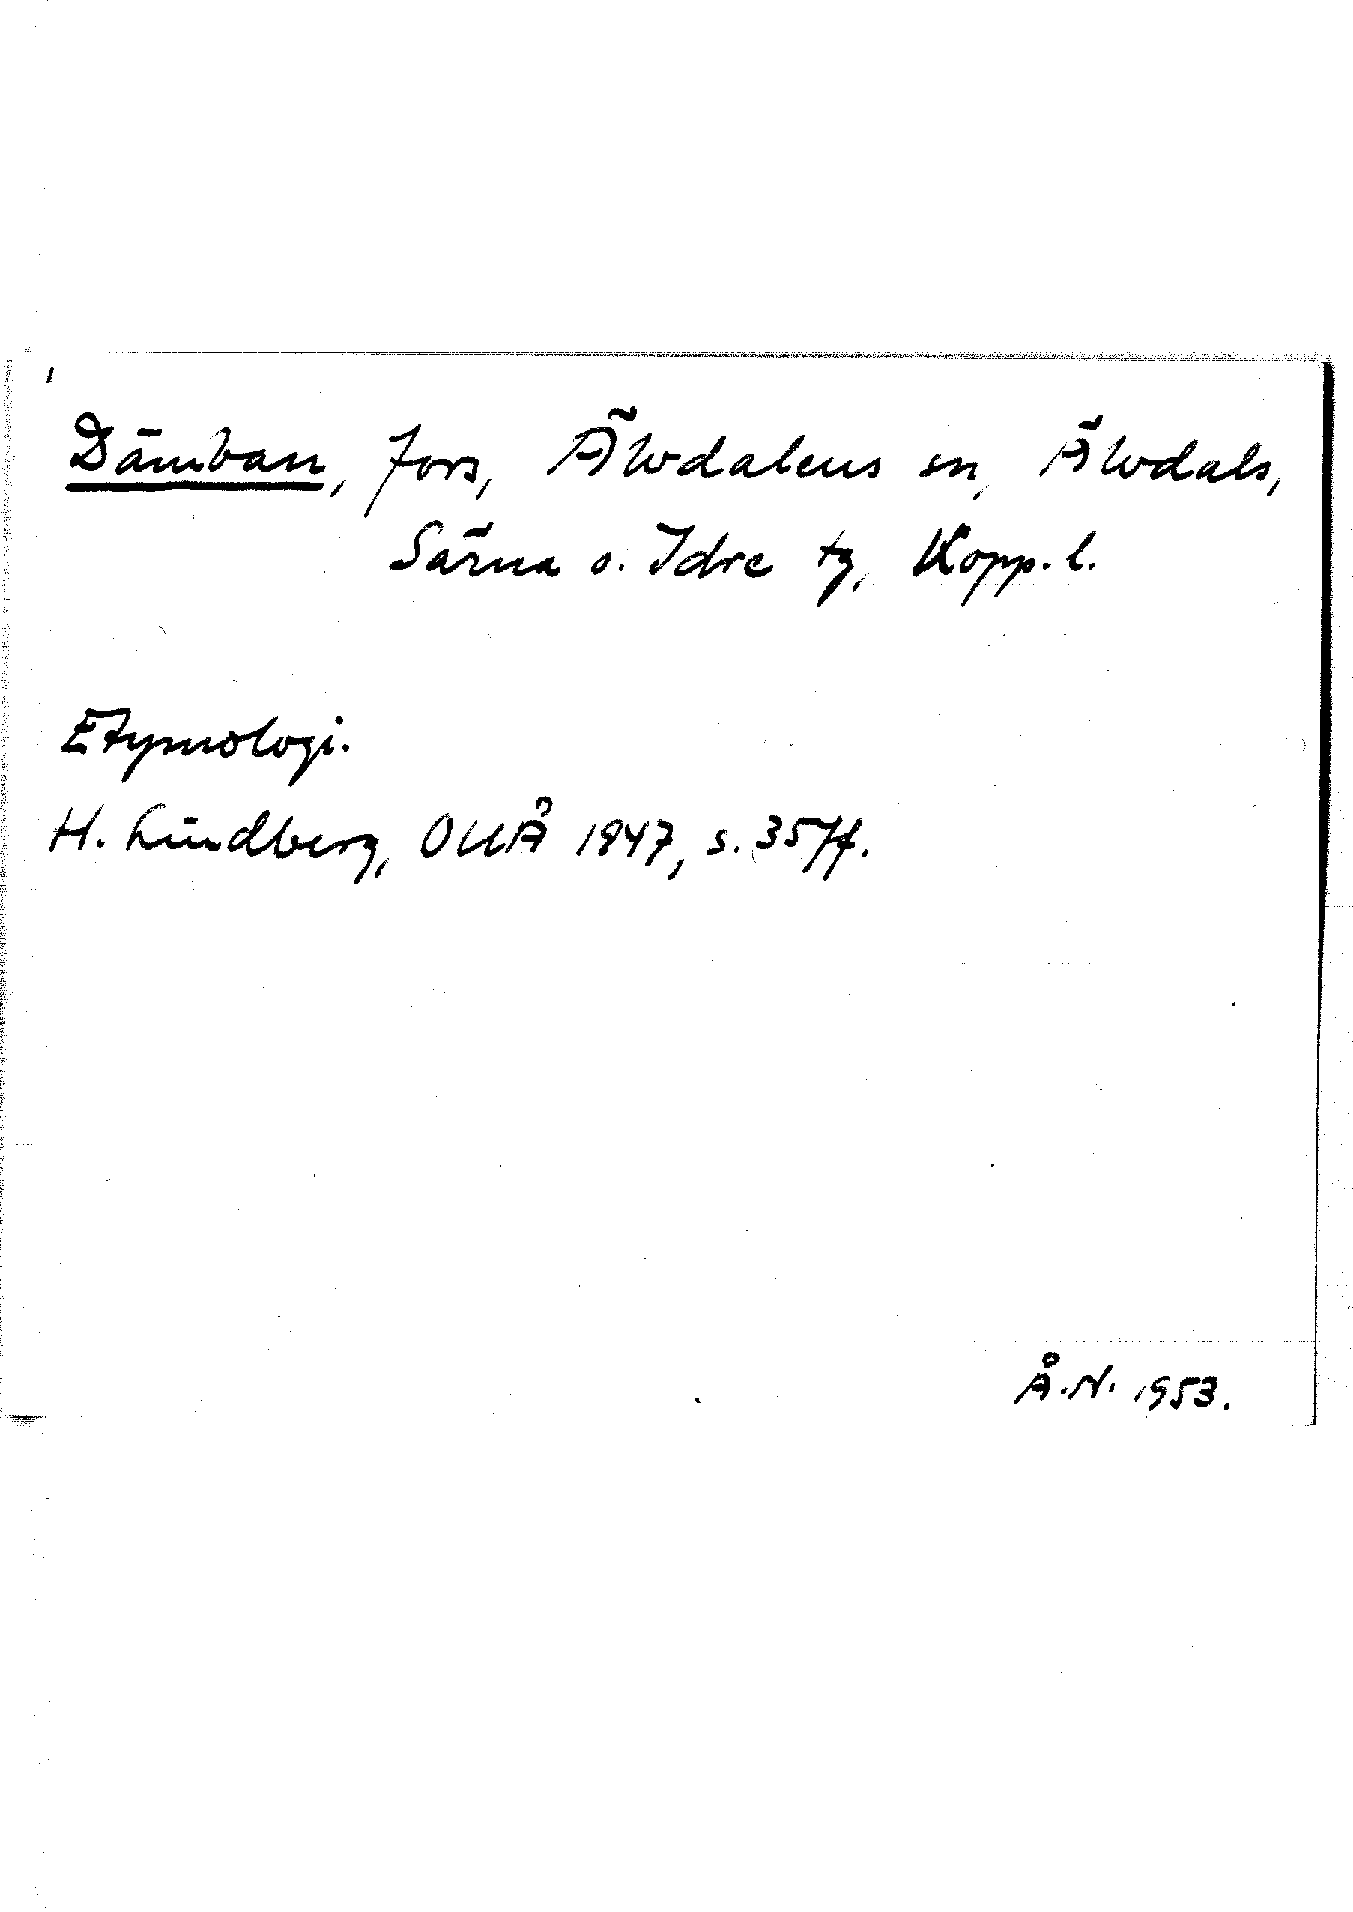 Dämban, fors, Älvdalens sn, Älvdals,
Särna o. Idre tg, Kopp. l.
Etymologi.
H. Lindberg, OUÅ 1947, s. 35 ff.
Å.N. 1953.